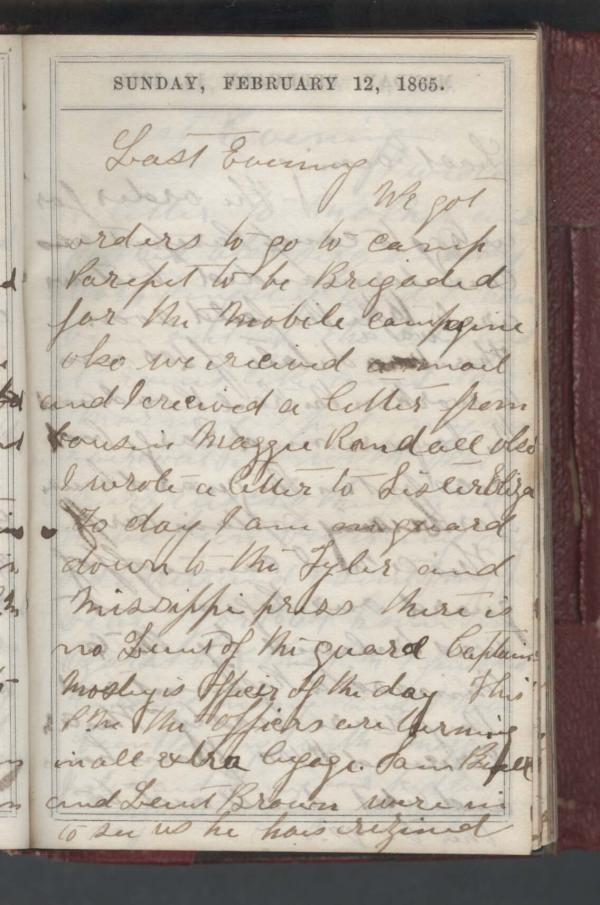 SUNDAY, FEBRUARY 12, 1865.
Last Evening
We got
orders to go to camp
Parepet to be Brigaded
for the Mobile campgine
olso we reieved a mail
and I received a letter from
Cousin Maggie Randall olso
I wrote a letter to Sister Eliza
To day I am on guard
down to the Tyler and
Missippi press there is
no Leiut of the guard Captain
Mosley is officir of the day This
P.M. the officers are turning
in all extra bgage. Sam
and Leiut Brown were in
to see us he hais rezined